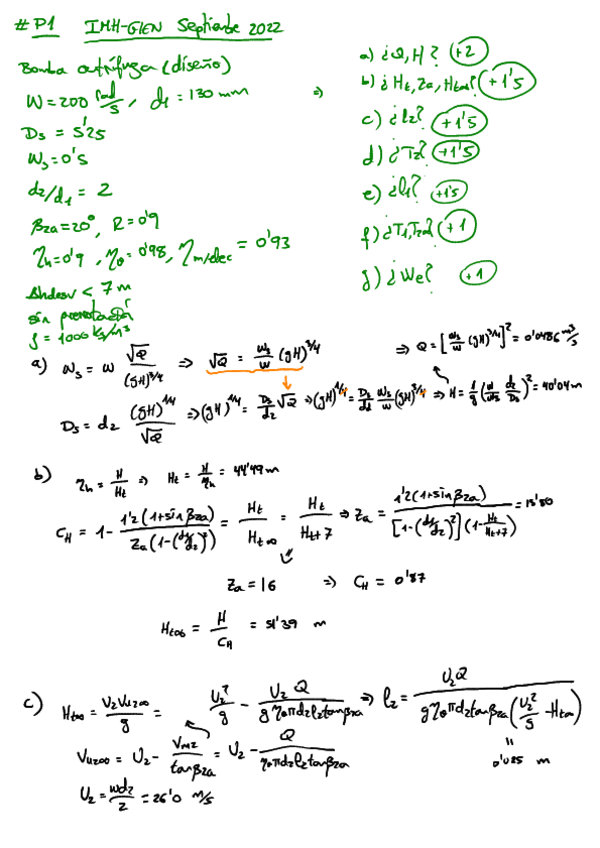 # P1 IMH-GIEN Septiembre 2022
Bomba centrífuga (diseño)
W = 200 rad/s, d1 = 130 mm ⇒
Ds = 5'25
Ws = 0'5
d2/d1 = 2
β2a = 20°, R = 0'9
ηh = 0'9, ηv = 0'98, ηm/elec = 0'93
Δhdesv < 7 m
sin prerrotación
ρ = 1000 kg/m³
a) ¿Q, H? +2
b) ¿Ht, Za, Ht∞? +1'5
c) ¿l2? +1'5
d) ¿T2? +1'5
e) ¿l1? +1'5
f) ¿T1, ? +1
g) ¿We? +1
a) ωs = ω √Q/(gH)^3/4 ⇒ √Q = ωs/ω (gH)^3/4 ⇒ Q = [ωs/ω (gH)^3/4]² = 0'0486 m³/s
Ds = d2 (gH)^1/4/√Q ⇒ (gH)^1/4 = Ds/d2 √Q ⇒ (gH)^1/4 = Ds/d2 ωs/ω (gH)^3/4 ⇒ H = 1/g (ω/ωs d2/Ds)² = 40'04 m
b) ηh = H/Ht ⇒ Ht = H/ηh = 44'49 m
CH = 1 - 1'2(1+sin β2a)/Za(1-(d1/d2)²) = Ht/Ht∞ = Ht/Ht+7 ⇒ Za = 1'2(1+sin β2a)/[1-(d1/d2)²](1-Ht/Ht+7) = 15'80
Za = 16 ⇒ CH = 0'87
Ht∞ = H/CH = 51'39 m
c) Ht∞ = U2Vu2∞/g = U2²/g - U2 Q/g ηv π d2 l2 tan β2a ⇒ l2 = U2 Q/g ηv π d2 tan β2a (U2²/g - Ht∞)
Vu2∞ = U2 - Vm2/tan β2a = U2 - Q/ηv π d2 l2 tan β2a
=
0'025 m
U2 = ωd2/2 = 26'0 m/s